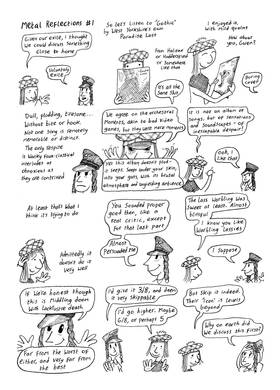 Metal Reflections #1
Given our exile, I thought
we could discuss something
close to home
Voluntary
exile!
So let's listen to "Gothic"
by West Yorkshire's own
Paradise Lost
From Halifax
or Huddersfield
or somewhere
like that
It's all the
same shit
I enjoyed it,
with mild qualms
How about
you, Gwen?
Boring
cover!
Dull, plodding, tiresome...
Without bite or hook.
Not one song is sincerely
memorable or distinct.
The only respite
is wonky faux-classical
interludes as
obnoxious as
they are contrived
We agree on the orchestral
moments, akin to bad video
games, but they were mere moments
Yes this album doesn't plod -
it seeps under your skin,
into your guts, with its brutal
atmosphere and unyielding ambience
It is not an album of
songs, but of sensations
and soundscapes - of
inescapable despair!
Ooh, I
like that!
At least that's what I
think it's trying to do
Admittedly it
doesn't do it
very well
You sounded proper
good then, like a
real critic, except
for that last part
Almost
persuaded me
The lass warbling was
sweet at least. Almost
blissful
I know you like
warbling lassies
I suppose
If we're honest though
this is middling doom
with lacklustre death
Far from the worst of
either, and very far from
the best
I'd give it 3/8, and then
a very skippable
I'd go higher. Maybe
6/8, or perhaps 5
But still, second is
indeed. Their 'Icon' is
levels beyond
Why on earth did
we discuss this first?